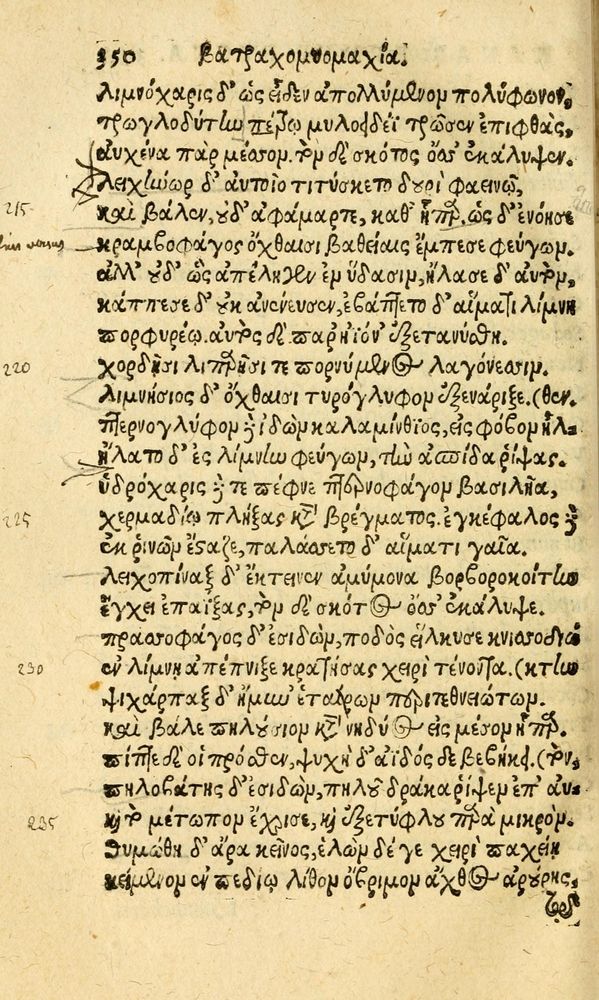 350 Βατραχομυομαχία.
λιμνόχαρις δ' ὡς εἶδεν ἀπολλύμενον πολύφωνον,
τρωγλοδύτην πέζῳ μυλοειδέϊ τρῶσεν ἐπιφθὰς,
αὐχένα παρ μέσσον. τὸν δὲ σκότος ὄσσ' ἐκάλυψεν.
λειχήνωρ δ' αὐτοῖο τιτύσκετο δουρὶ φαεινῷ,
215
καὶ βάλεν, οὐδ' ἀφάμαρτε, καθ' ἧπαρ. ὡς δ' ἐνόησε
κραμβοφάγος ὄχθαισι βαθείαις ἔμπεσε φεύγων.
ἀλλ' οὐδ' ὣς ἀπέληγεν ἐν ὕδασιν, ἤλασε δ' αὐτόν,
κάππεσε δ' οὐκ ἀνένευσεν, ἐβάπτετο δ' αἵματι λίμνη
πορφυρέῳ. αὐτὸς δὲ παρ' ἠϊόν' ἐξετανύσθη.
220
χορδῇσι λιπαρῇσί τε πορνύμενος λαγόνεσσιν.
λιμνήσιος δ' ὄχθαισι τυρόγλυφον ἐξενάριξε. (θεν.
πτερνογλύφον δὲ ἰδὼν καλαμίνθιος, εἰς φόβον ἦλ-
ἥλατο δ' ἐς λίμνην φεύγων, τὴν ἀσπίδα ῥίψας.
ὑδρόχαρις δέ τε πέφνε πτερνοφάγον βασιλῆα,
225
χερμαδίῳ πλήξας κατὰ βρέγματος. ἐγκέφαλος δὲ
ἐκ ῥινῶν ἔσταζε, παλάσσετο δ' αἵματι γαῖα.
λειχοπίναξ δ' ἔκτεινεν ἀμύμονα βορβοροκοίτην
ἔγχει ἐπαΐξας, τὸν δὲ σκότος ὄσσ' ἐκάλυψε.
πρασσοφάγος δ' ἐσιδὼν, ποδὸς εἵλκυσε κνισσοδιώ
230
ἐν λίμνῃ ἀπέπνιξε κρατήσας χειρὶ τένοντα. (κτην
ψιχάρπαξ δ' ἤμυν' ἑτάρων περὶ τεθνειώτων.
καὶ βάλε πηλούσιον κατὰ νηδύος εἰς μέσον ἧπαρ.
πίπτε δέ οἱ πρόσθεν, ψυχὴ δ' ἀϊδός δε βεβήκει. (τὸν,
πηλοβάτης δ' ἐσιδὼν, πηλοῦ δράκα ῥῖψεν ἐπ' αὐ-
235
καὶ τὸ μέτωπον ἔχρισε, καὶ ἐξετύφλου παρὰ μικρόν.
θυμώθη δ' ἄρα κεῖνος, ἑλὼν δέ γε χειρὶ παχείῃ
κείμενον ἐν πεδίῳ λίθον ὄβριμον ἄχθος ἀρούρης,